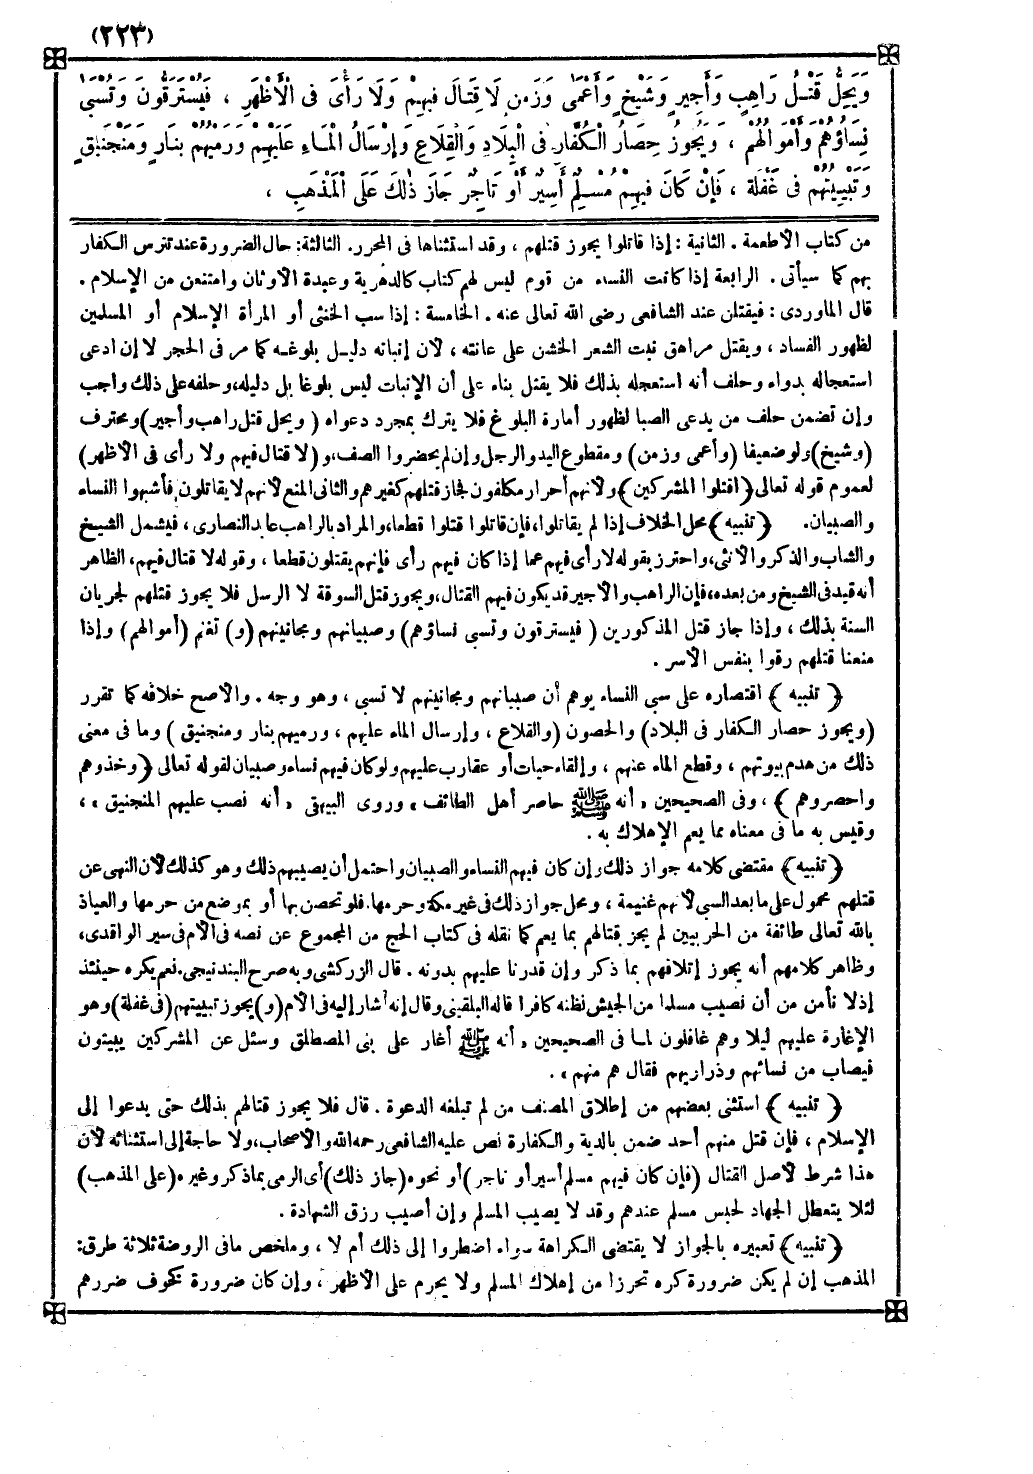 (٢٢٣)
وَيَحِلُّ قَتْلُ رَاهِبٍ وَأَجِيرٍ وَشَيْخٍ وَأَعْمَى وَزَمِنٍ لَا قِتَالَ فِيهِمْ وَلَا رَأْىَ فِى الْأَظْهَرِ ، فَيُسْتَرَقُّونَ وَتُسْبَى
نِسَاؤُهُمْ وَأَمْوَالُهُمْ ، وَيَجُوزُ حِصَارُ الْكُفَّارِ فِى الْبِلَادِ وَالْقِلَاعِ وَإِرْسَالُ الْمَاءِ عَلَيْهِمْ وَرَمْيُهُمْ بِنَارٍ وَمَنْجَنِيقٍ
وَتَبْيِيتُهُمْ فِى غَفْلَةٍ ، فَإِنْ كَانَ فِيهِمْ مُسْلِمٌ أَسِيرٌ أَوْ تَاجِرٌ جَازَ ذٰلِكَ عَلَى الْمَذْهَبِ ،
من كتاب الأطعمة . الثانية : إذا قاتلوا يجوز قتلهم ، وقد استثناها فى المحرر . الثالثة : حال الضرورة عند تترس الكفار
بهم كما سيأتى . الرابعة إذا كانت النساء من قوم ليس لهم كتاب كالدهرية وعبدة الأوثان وامتنعن من الإسلام .
قال الماوردى : فيقتلن عند الشافعى رضى الله تعالى عنه . الخامسة : إذا سب الخنثى أو المرأة الإسلام أو المسلمين
لظهور الفساد ، ويقتل مراهق نبت الشعر الخشن على عانته ، لأن إنباته دليل بلوغه كما مر فى الحجر لا إن ادعى
استعجاله بدواء وحلف أنه استعجله بذلك فلا يقتل بناء على أن الإنبات ليس بلوغا بل دليله، وحلفه على ذلك واجب
وإن تضمن حلف من يدعى الصبا لظهور أمارة البلوغ فلا يترك بمجرد دعواه ( ويحل قتل راهب وأجير) ومحترف
(وشيخ) ولو ضعيفا (وأعمى وزمن) ومقطوع اليد والرجل وإن لم يحضروا الصف، و(لا قتال فيهم ولا رأى فى الأظهر)
لعموم قوله تعالى (اقتلوا المشركين) ولأنهم أحرار مكلفون فجاز قتلهم كغيرهم والثانى المنع لأنهم لا يقاتلون فأشبهوا النساء
والصبيان. ( تنبيه ) محل الخلاف إذا لم يقاتلوا، فإن قاتلوا قتلوا قطعا، والمراد بالراهب عابد النصارى ، فيشمل الشيخ
والشاب والذكر والأنثى، واحترز بقوله لا رأى فيهم عما إذا كان فيهم رأى فإنهم يقتلون قطعا ، وقوله لا قتال فيهم، الظاهر
أنه قيد فى الشيخ ومن بعده، فإن الراهب والأجير قد يكون فيهم القتال، ويجوز قتل السوقة لا الرسل فلا يجوز قتلهم لجريان
السنة بذلك ، وإذا جاز قتل المذكورين ( فيسترقون وتسبى نساؤهم) وصبيانهم ومجانينهم (و) تغنم (أموالهم) وإذا
منعنا قتلهم رقوا بنفس الأسر .
( تنبيه ) اقتصاره على سبى النساء يوهم أن صبيانهم ومجانينهم لا تسبى ، وهو وجه . والأصح خلافه كما تقرر
(ويجوز حصار الكفار فى البلاد) والحصون (والقلاع ، وإرسال الماء عليهم ، ورميهم بنار ومنجنيق ) وما فى معنى
ذلك من هدم بيوتهم ، وقطع الماء عنهم ، وإلقاء حيات أو عقارب عليهم ولو كان فيهم نساء وصبيان لقوله تعالى ( وخذوهم
واحصروهم ) ، وفى الصحيحين « أنه ﷺ حاصر أهل الطائف » وروى البيهقى « أنه نصب عليهم المنجنيق » ،
وقيس به ما فى معناه مما يعم الإهلاك به .
( تنبيه ) مقتضى كلامه جواز ذلك وإن كان فيهم النساء والصبيان واحتمل أن يصيبهم ذلك وهو كذلك لأن النهى عن
قتلهم محمول على ما بعد السبى لأنهم غنيمة ، ومحل جواز ذلك فى غير مكة وحرمها. فلو تحصن بها أو بموضع من حرمها والعياذ
بالله تعالى طائفة من الحربيين لم يجز قتالهم بما يعم كما نقله فى كتاب الحج من المجموع عن نصه فى الأم فى سير الواقدى،
وظاهر كلامهم أنه يجوز إتلافهم بما ذكر وإن قدرنا عليهم بدونه . قال الزركشى وبه صرح البندنيجى. نعم يكره حينئذ
إذ لا نأمن من أن نصيب مسلما من الجيش نظنه كافرا قاله البلقينى وقال إنه أشار إليه فى الأم (و) يجوز تبييتهم (فى غفلة) وهو
الإغارة عليهم ليلا وهم غافلون لما فى الصحيحين « أنه ﷺ أغار على بنى المصطلق وسئل عن المشركين يبيتون
فيصاب من نسائهم وذراريهم فقال هم منهم » .
( تنبيه ) استثنى بعضهم من إطلاق المصنف من لم تبلغه الدعوة . قال فلا يجوز قتالهم بذلك حتى يدعوا إلى
الإسلام ، فإن قتل منهم أحد ضمن بالدية والكفارة نص عليه الشافعى رحمه الله والأصحاب، ولا حاجة إلى استثنائه لأن
هذا شرط لأصل القتال (فإن كان فيهم مسلم أسير أو تاجر) أو نحوه (جاز ذلك) أى الرمى بما ذكر وغيره (على المذهب)
لئلا يتعطل الجهاد لحبس مسلم عندهم وقد لا يصيب المسلم وإن أصيب رزق الشهادة .
( تنبيه ) تعبيره بالجواز لا يقتضى الكراهة سواء اضطروا إلى ذلك أم لا ، وملخص ما فى الروضة ثلاثة طرق:
المذهب إن لم يكن ضرورة كره تحرزا من إهلاك المسلم ولا يحرم على الأظهر ، وإن كان ضرورة كخوف ضررهم